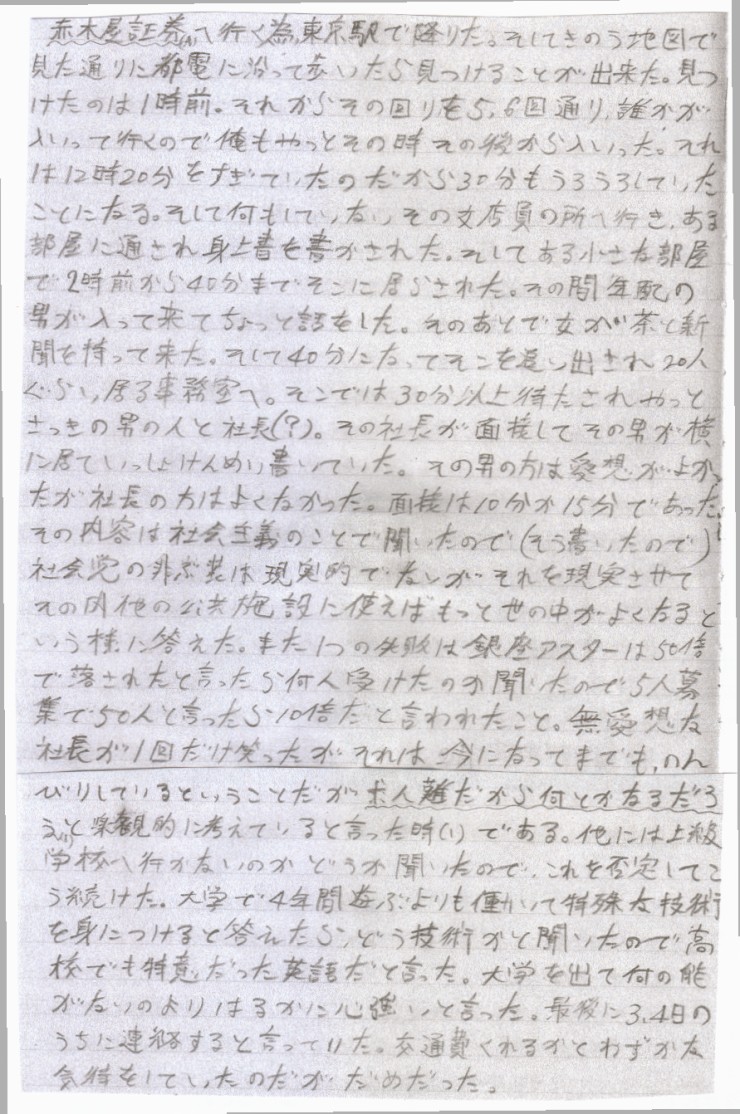 赤木屋証券へ行く為,東京駅で降りた。そしてきのう地図で
見た通りに都電に沿って歩いたら見つけることが出来た。見つ
けたのは1時前。それからその回りを5,6回通り,誰かが
入いって行くので俺もやっとその時その後から入いった。それ
は12時20分をすぎていたのだから30分もうろうろしていった
ことになる。そして何もしていないその支店員の所へ行き,ある
部屋に通され身上書を書かされた。そしてある小さな部屋
で2時前から40分までそこに居らされた。その間年配の
男が入って来てちょっと話をした。そのあとで女が茶と新
聞を持って来た。そして40分になってそこを追い出され20人
ぐらい居る事務室へ。そこでは30分以上待たされやっと
さっきの男の人と社長(?)。その社長が面接してその男が横
に居ていっしょけんめい書いていた。その男の方は愛想がよかっ
たが社長の方はよくなかった。面接は10分か15分であった。
その内容は社会主義のことで聞いたので(そう書いたので)
社会党の非武装は現実的でないがそれを現実させて
その内他の公共施設に使えばもっと世の中がよくなると
いう様に答えた。また1つの失敗は銀座アスターは50倍
で落されたと言ったら何人受けたのか聞いたので5人募
集で50人と言ったら10倍だと言われたこと。無愛想な
社長が1回だけ笑ったがそれは今になってまでも,のん
びりしているということだが求人難だから何とかなるだろ
うと楽観的に考えていると言った時(1)である。他には上級
学校へ行かないのかどうか聞いたので,これを否定してこ
う続けた。大学で4年間遊ぶよりも働いて特殊な技術
を身につけると答えたら,どう技術かと聞いたので高
校でも特意だった英語だと言った。大学を出て何の能
がないのよりはるかに心強いと言った。最後に3,4日の
うちに連絡すると言っていた。交通費くれるかとわずかな
気待をしていたのだがだめだった。